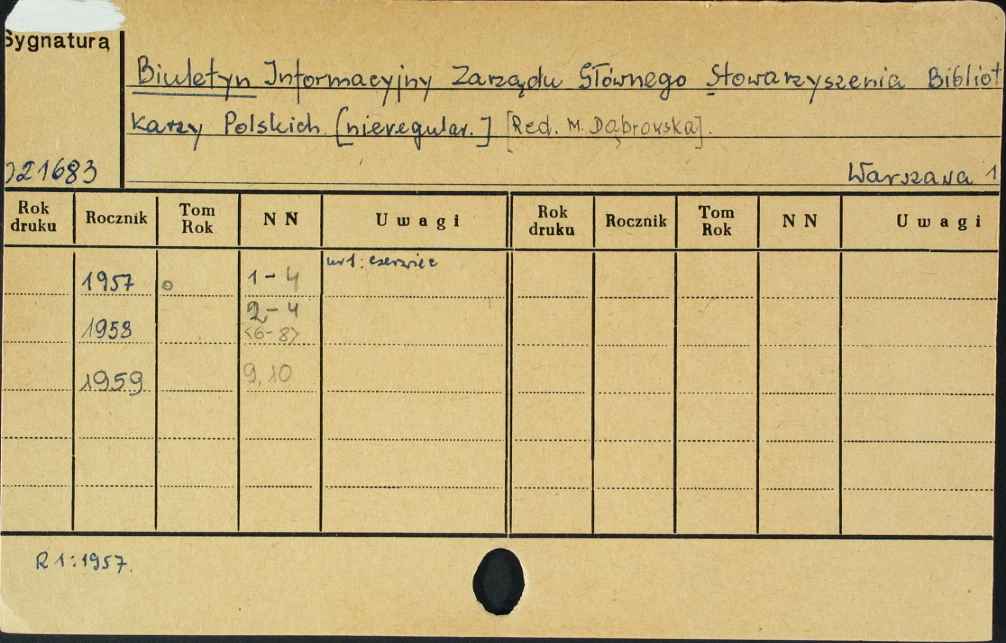 Sygnatura
Biuletyn Informacyjny Zarządu Głównego Stowarzyszenia Bibliot
karzy Polskich [nieregular.] [Red. M. Dąbrowska].
21683
Warszawa 1
Rok druku Rocznik Tom Rok NN Uwagi Rok druku Rocznik Tom Rok NN Uwagi
nr 1: czerwiec
1957 1-4
2-4
1958 <6-8>
1959 9, 10
R 1: 1957.